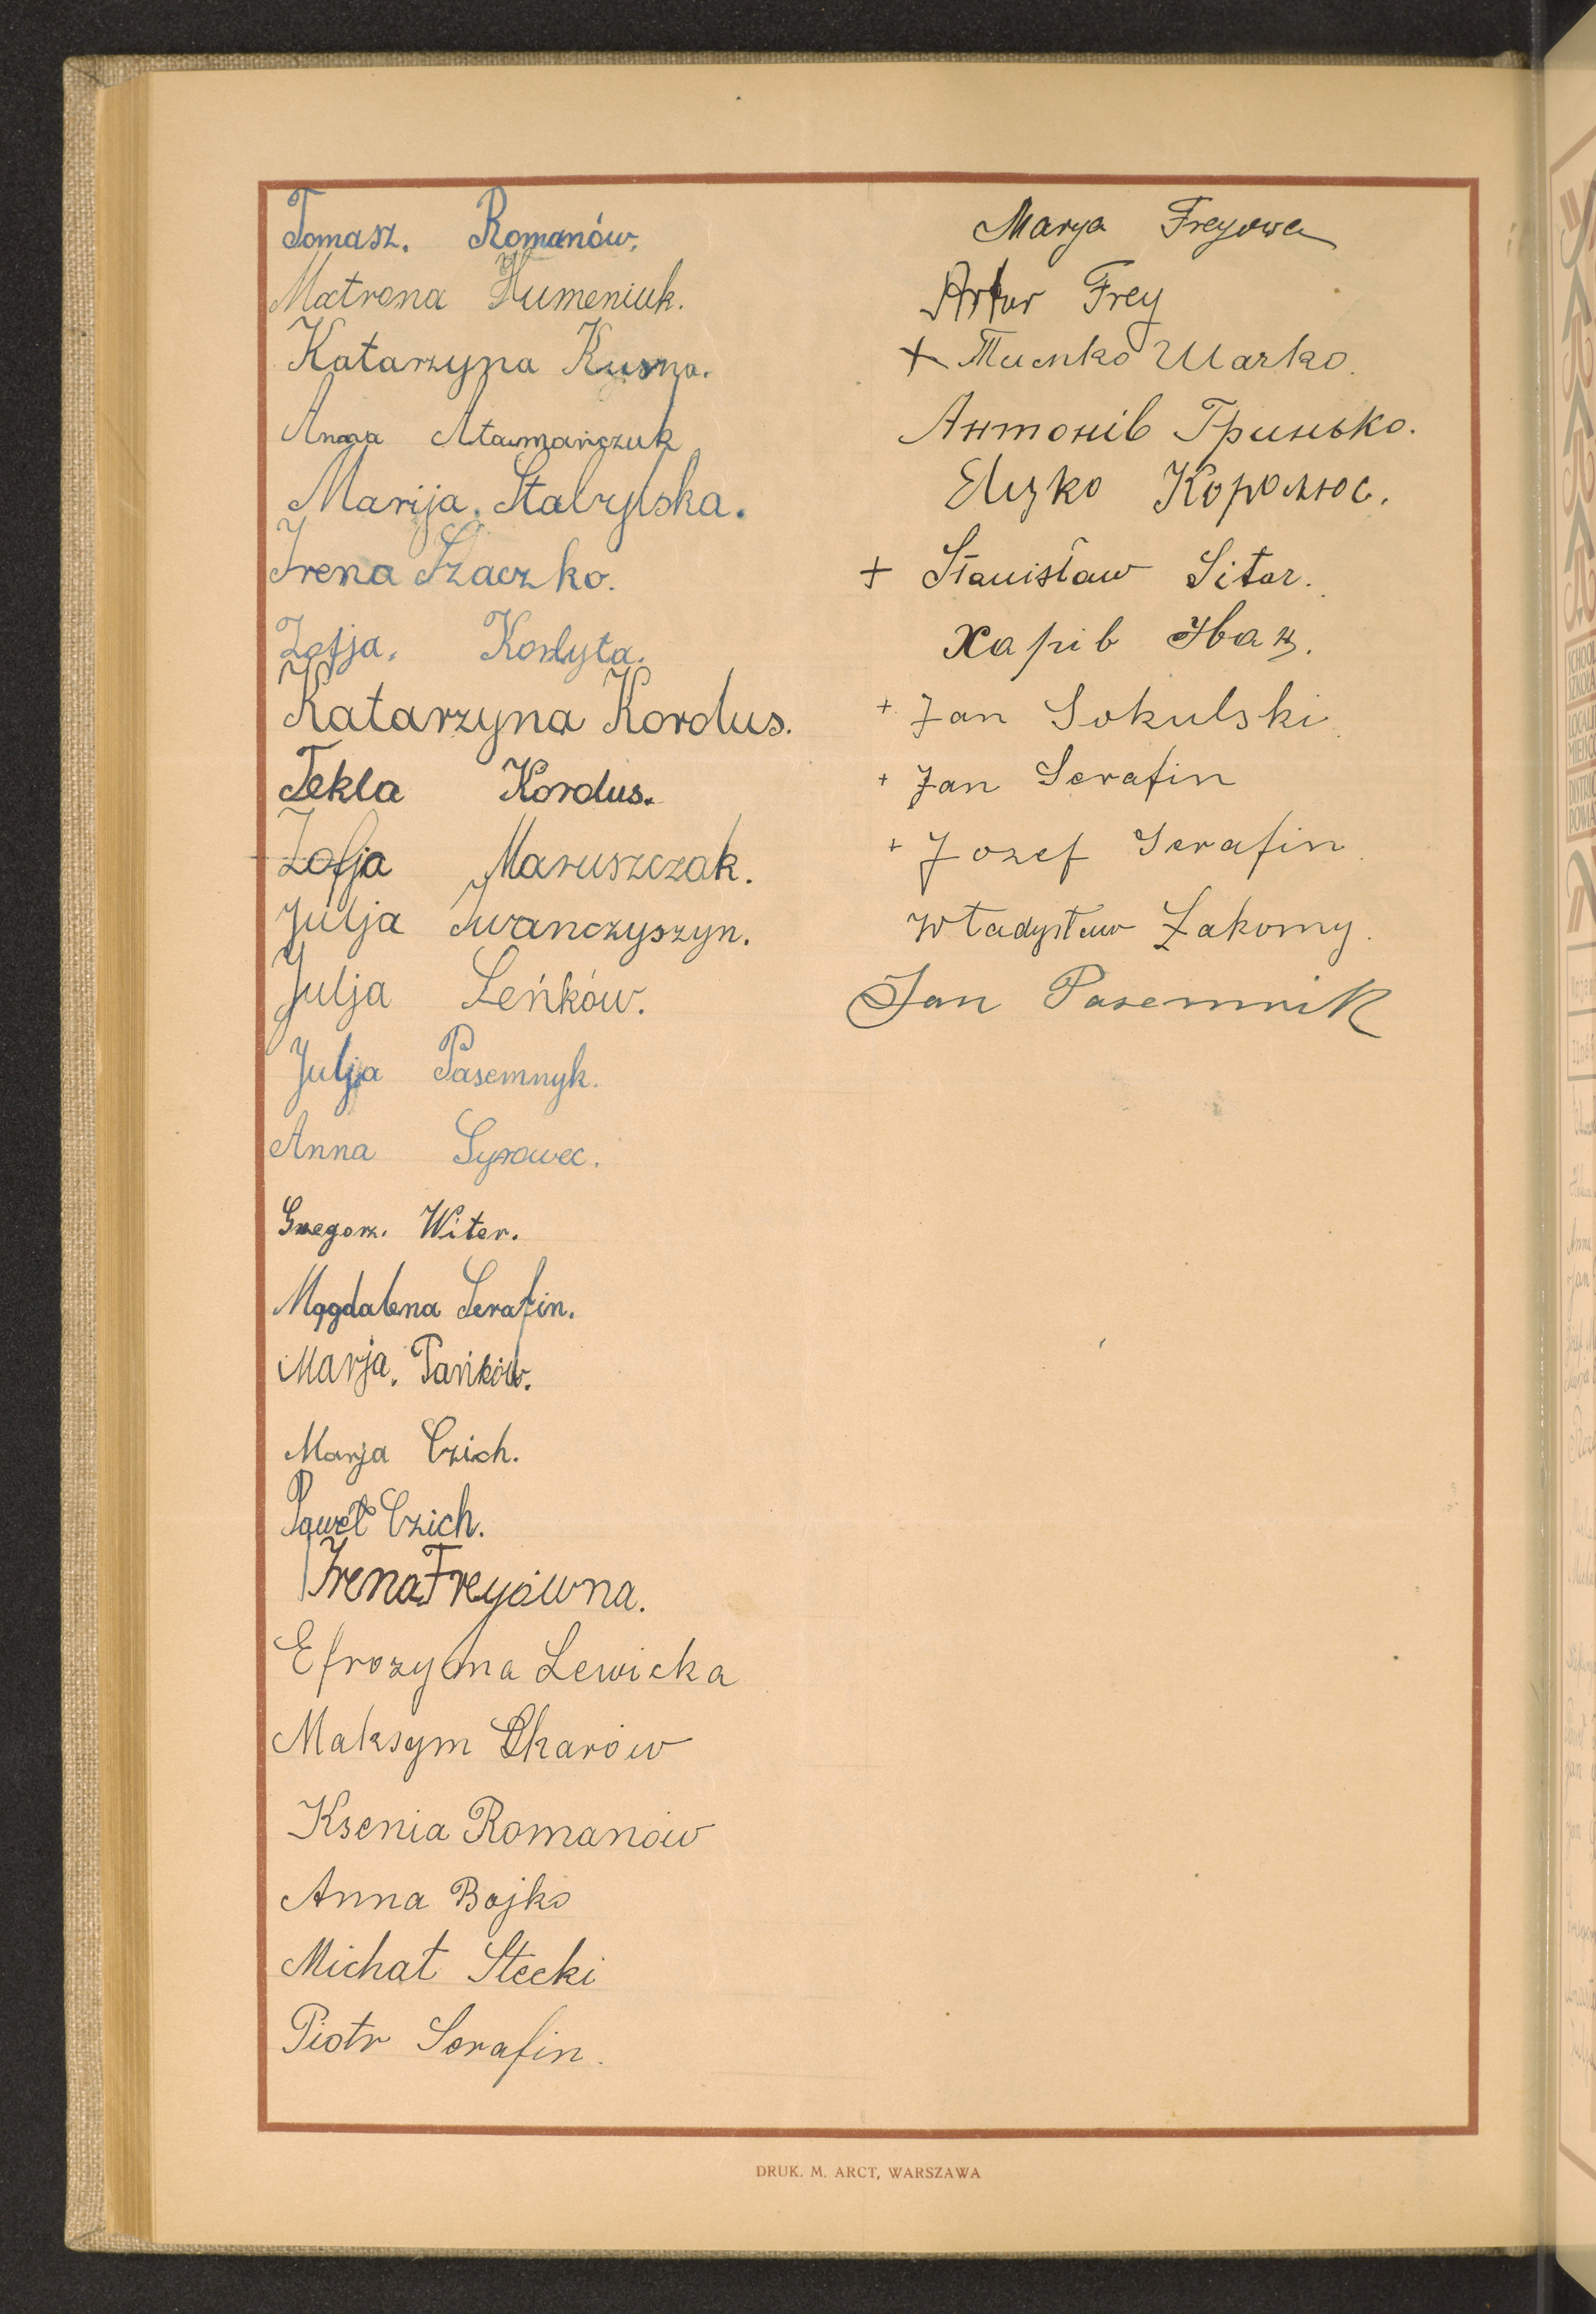 Tomasz. Romanów.
Matrona Humeniuk.
Katarzyna Kusma.
Anna Atamańczuk
Marija. Stabryska.
Irena Szaczko.
Zofja.
Katarzyna Kordus.
Tekla Kordus.
Zofja Maruszczak.
Julja Iwanczyszyn.
Julja Leńków.
Julja Pasemnyk.
Anna Syrowec.
Grzegorz. Witer.
Magdalena Serafin.
Marja. Pańków.
Marja Czich.
Paweł Czich.
Irena Freyówna.
Efrozyna Lewicka
Maksym Skarów
Ksenia Romanów
Anna Bojko
Michał Stecki
Piotr Serafin.
Marya Freyowa
Artur Frey
+ Тимко Шачко.
Антонів Гринько.
Королюс.
+ Stanisław Sitar.
Харів Іван.
+ Jan Sokulski.
+ Jan Serafin
+ Jozef Serafin.
Władysław Łakomy.
Jan Pasemnik
DRUK. M. ARCT, WARSZAWA